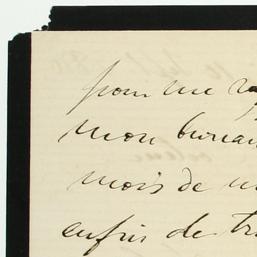 pour me
mon bureau
mois de
enfin de